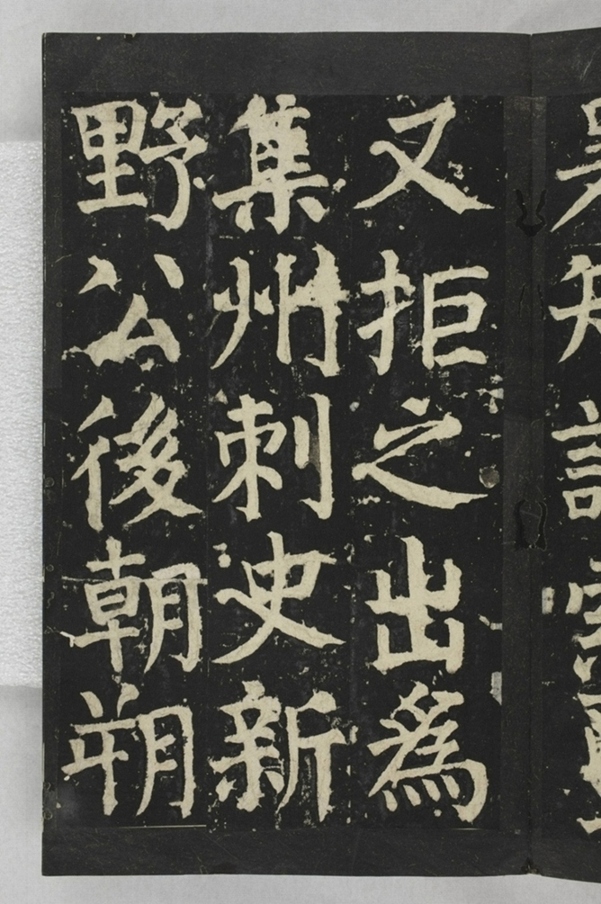 知
又拒之出為
集州刺史新
野公後朝朔